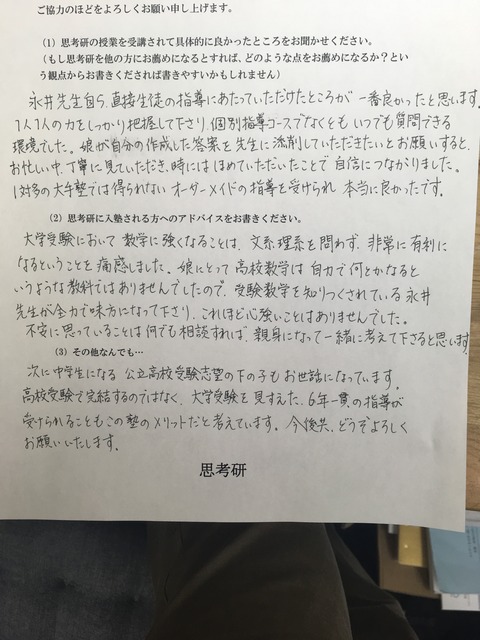 ご協力のほどをよろしくお願い申し上げます。
(1)思考研の授業を受講されて具体的に良かったところをお聞かせください。
(もし思考研を他の方にお薦めになるとすれば、どのような点をお薦めになるか?とい
う観点からお書きくだされば書きやすいかもしれません)
永井先生自ら、直接生徒の指導にあたっていただけたところが一番良かったと思います。
1人1人の力をしっかり把握して下さり、個別指導コースでなくともいつでも質問できる
環境でした。娘が自分の作成した答案を先生に添削していただきたいとお願いすると、
お忙しい中、丁寧に見ていただき、時にはほめていただいたことで自信につながりました。
1対多の大手塾では得られないオーダーメイドの指導を受けられ本当に良かったです。
(2)思考研に入塾される方へのアドバイスをお書きください。
大学受験において数学に強くなることは、文系理系を問わず、非常に有利に
なるということを痛感しました。娘にとって高校数学は自力で何とかなると
いうような教科ではありませんでしたので、受験数学を知りつくされている永井
先生が全力で味方になって下さり、これほど心強いことはありませんでした。
不安に思っていることは何でも相談すれば、親身になって一緒に考えて下さると思います。
(3)その他なんでも…
次に中学生になる公立高校受験志望の下の子もお世話になっています。
高校受験で完結するのではなく、大学受験を見すえた、6年一貫の指導が
受けられることもこの塾のメリットだと考えています。今後共、どうぞよろしく
お願いいたします。
思考研